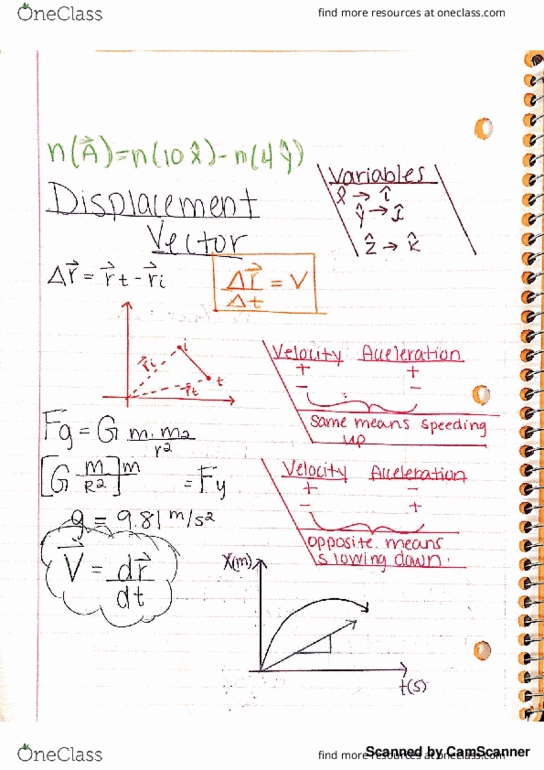 OneClass
find more resources at oneclass.com
n(A⃗)=n(10x̂)-n(4ŷ)
Variables
x̂ → î
ŷ → ĵ
ẑ → k̂
Displacement
Vector
Δr⃗ = r⃗t - r⃗i
Δr⃗/Δt = V
r⃗i
i
r⃗t
t
Velocity Acceleration
+ +
- -
Same means speeding
up
Fg = G m₁m₂/r²
[G m/R²]m = Fy
g = 9.81 m/s²
Velocity Acceleration
+ -
- +
opposite means
slowing down.
V⃗ = dr⃗/dt
X(m)
t(s)
OneClass
find more resources at oneclass.com
Scanned by CamScanner